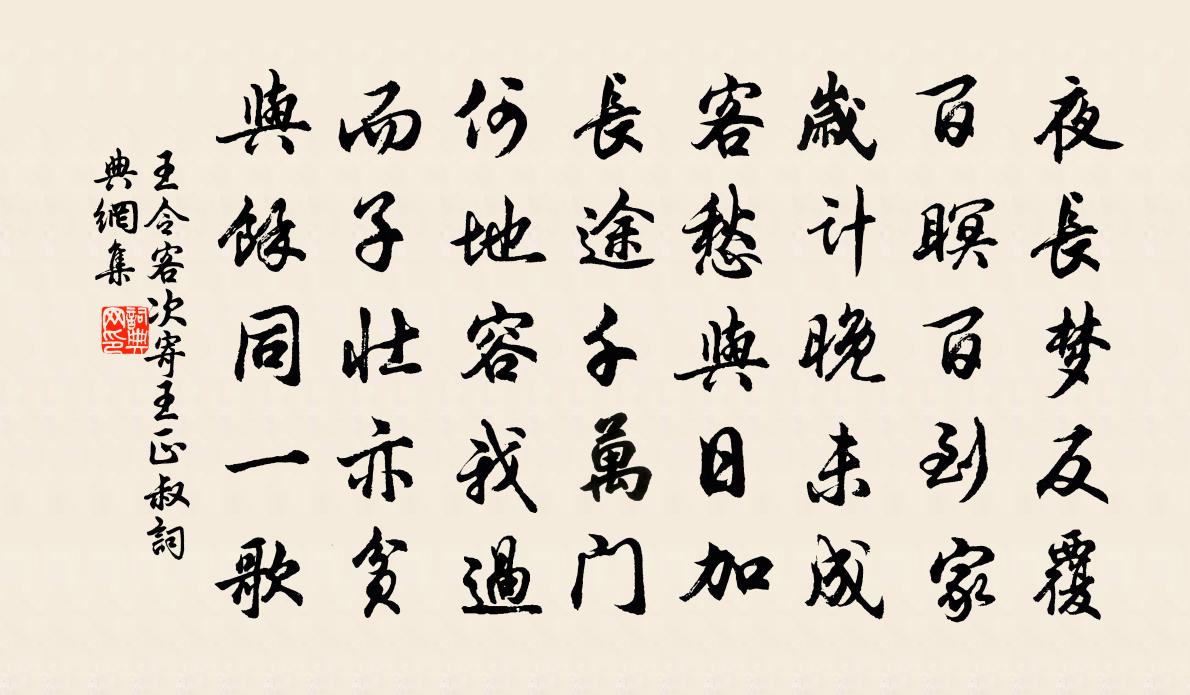 夜長梦反覆
百瞑百到家
歲计晚未成
客愁與日加
長途千萬门
何地容我過
而子壯亦貧
與餘同一歌
王令客次寄王正叔詞
典網集
詞典
网印